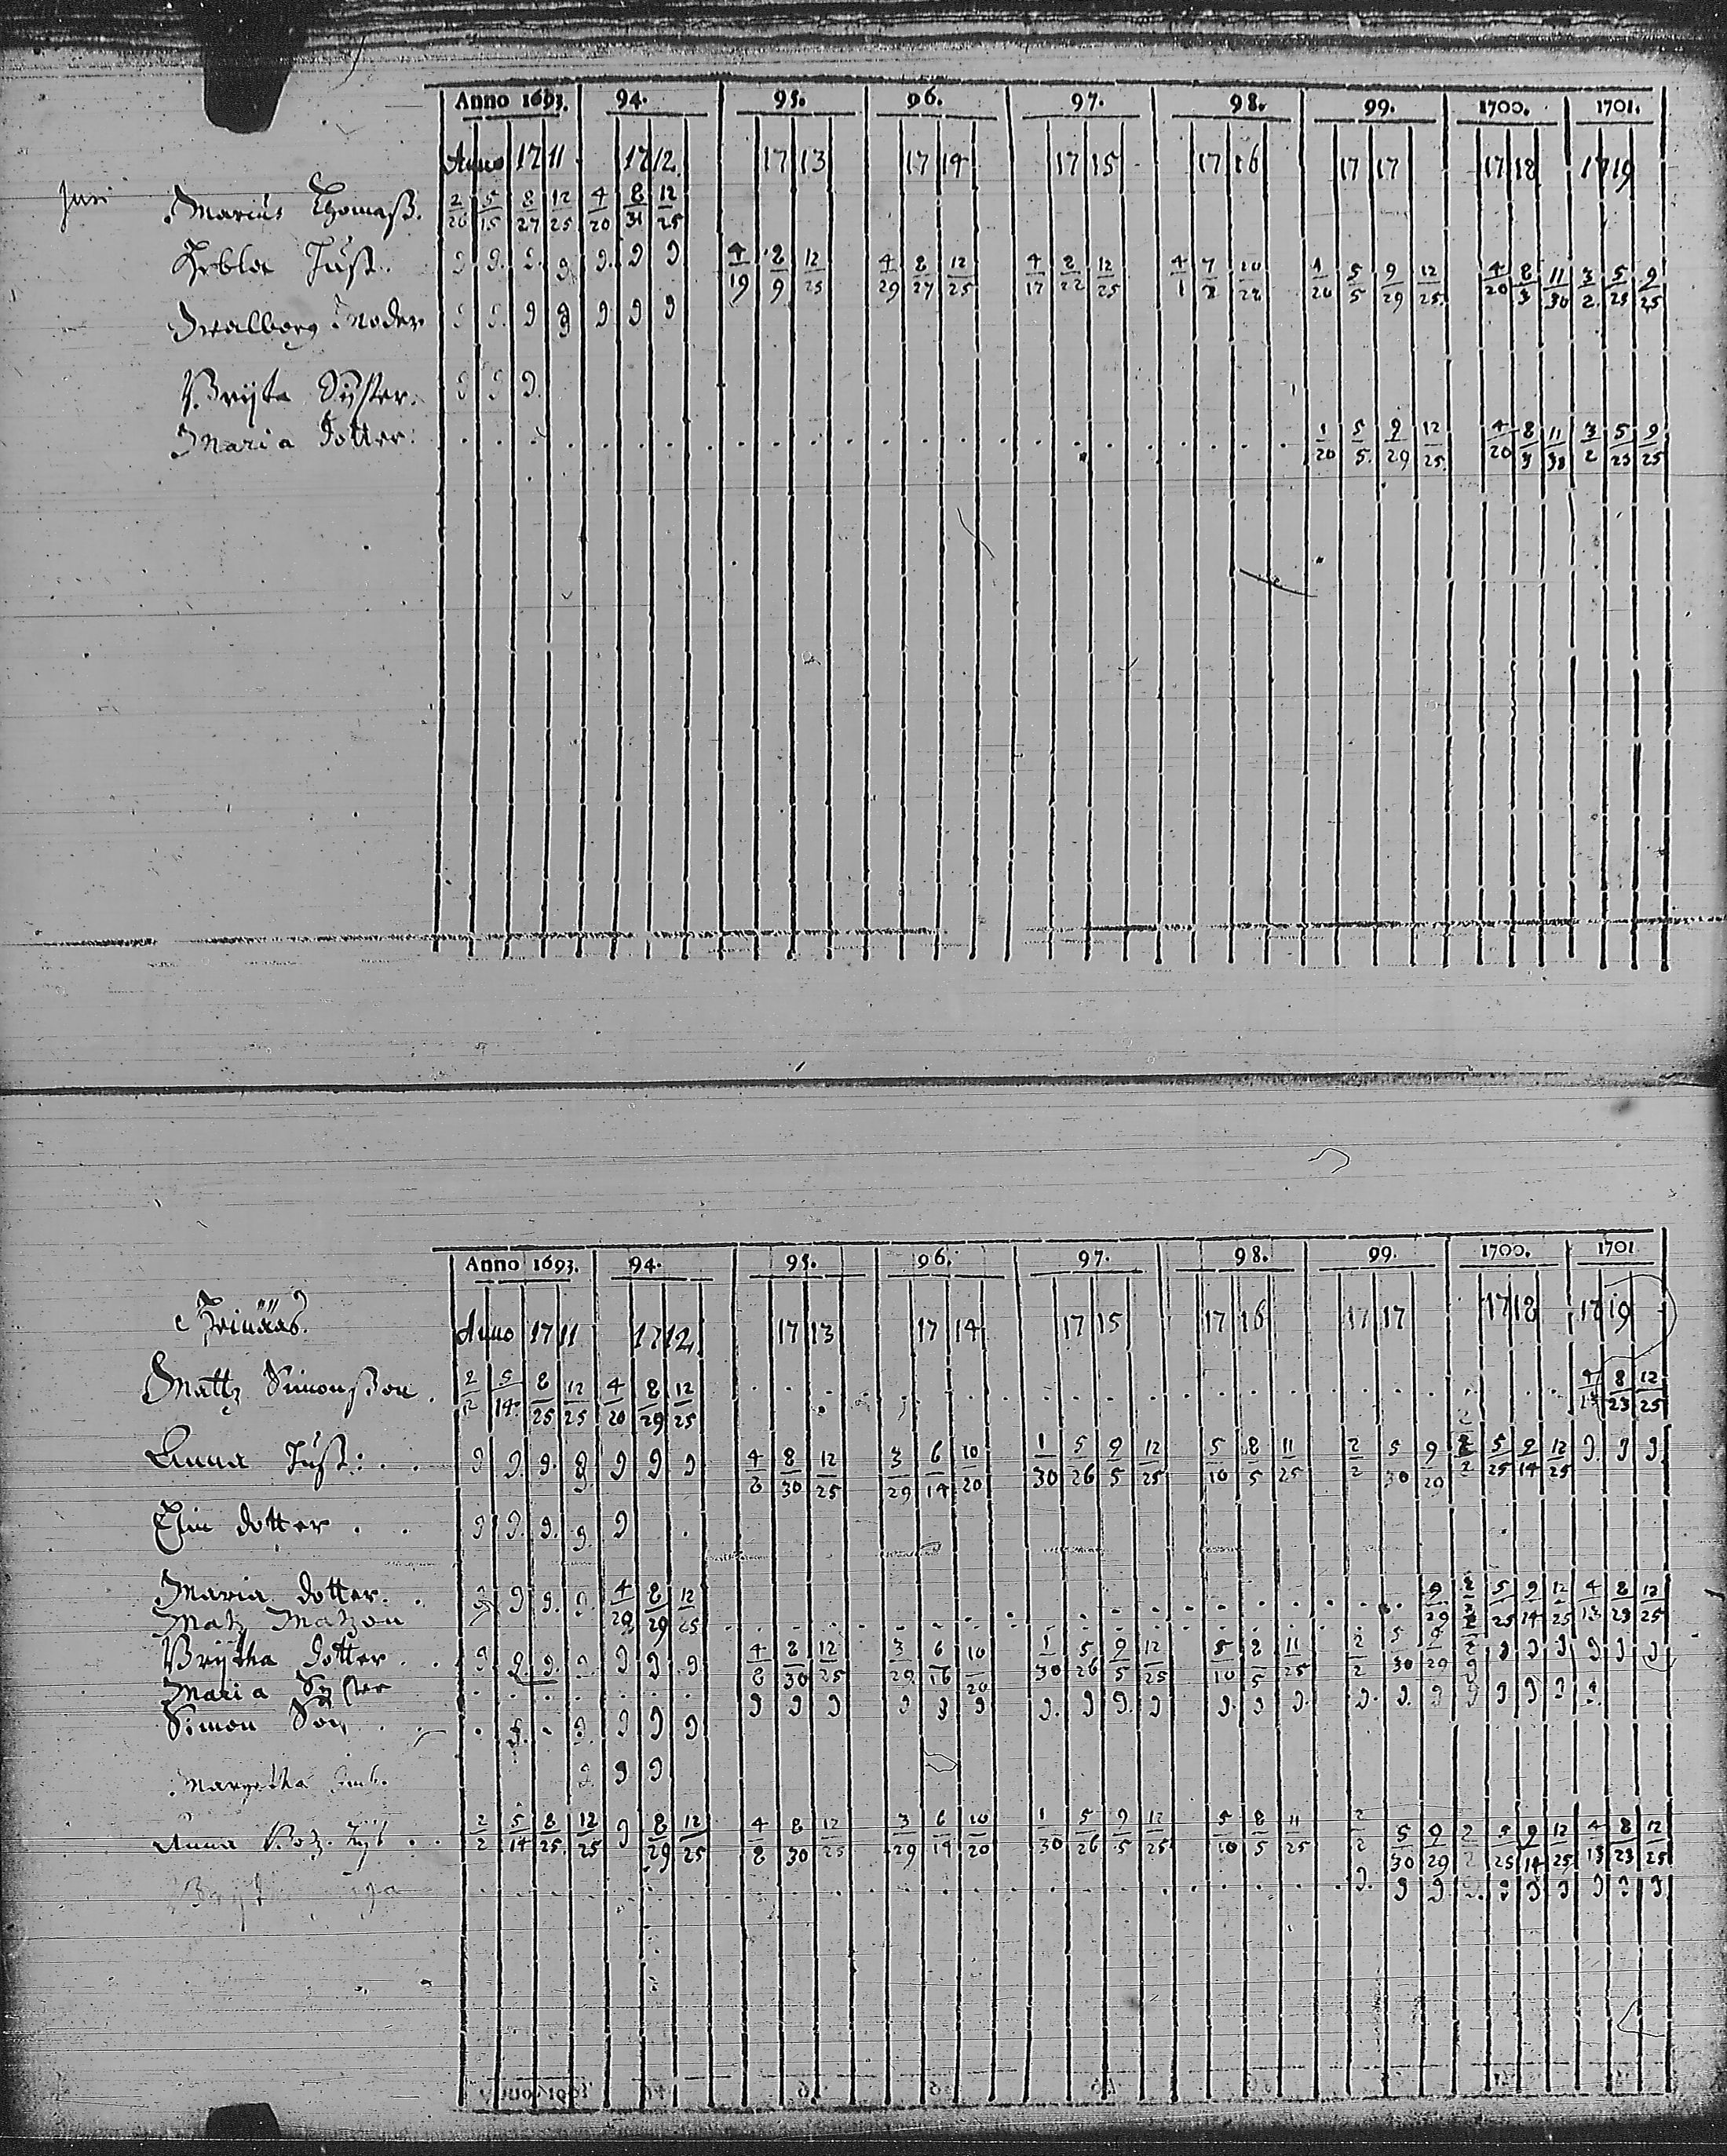 Anno 1693. 94. 95. 96. 97. 98. 99. 1700. 1701.
Anno 1711 1712. 1713 1714 1715 1716 1717 1718 1719
Marius Thomaß. 2/26 5/15 8/27 12/25 4/20 8/31 12/25
Hust. 9 9. 9. 9 9. 9 9 4/19 8/9 12/25 4/29 8/27 12/25 4/17 8/22 12/25 4/1 7/8 10/28 1/20 5/5 9/29 12/25 4/20 8/3 11/30 3/2 5/23 9/25
Walborg Moder 9 9. 9 9 9 9 9
Brijta Syster. 9 9 9.
Maria Dotter: 1/20 5/5. 9/29 12/25. 4/20 8/3 11/30 3/2 5/23 9/25
Anno 1693. 94. 95. 96. 97. 98. 99. 1700. 1701
Anno 1711 1712 1713 1714 1715 1716 1717 1718 1719
Mattz Simonßon. 2/2 5/14 8/25 12/25 4/20 8/29 12/25 4/13 8/23 12/25
Anna Hust: 9 9. 9. 9 9 9 9 4/8 8/30 12/25 3/29 6/14 10/20 1/30 5/26 9/5 12/25 5/10 8/5 11/25 2/2 5/30 9/29 2/2 5/25 9/14 12/25 9. 9 9.
Elin dotter. 9 9. 9. 9 9
Maria dotter. 9 9 9. 9. 4/29 8/29 12/25 9/29 2/2 5/25 9/14 12/25 4/13 8/23 12/25
Matz Matzon
Brijtha dotter. 9 9. 9. 9 9 9 9 4/8 8/30 12/25 3/29 6/16 10/20 1/30 5/26 9/5 12/25 5/10 8/5 11/25 2/2 5/30 9/29 9 9 9 9 9 9 9
Maria Syster 9 9 9 9 9 9 9. 9 9. 9 9. 9. 9. 9. 9. 9 9 9 9 9
Simon Son 9. 9. 9 9 9
Margetha 9 9 9
Anna 2/2 5/14 8/25. 12/25 9 8/29 12/25 4/8 8/30 12/25 3/29 6/14 10/20 1/30 5/26 9/5 12/25 5/10 8/5 11/25 2/2 5/30 9/29 2/2 5/25 9/14 12/25 4/13 8/23 12/25
9. 9 9 9. 9 9 9 9 9 9